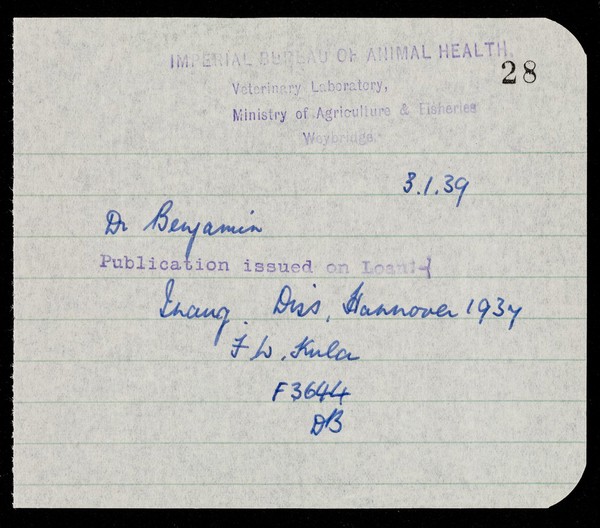 IMPERIAL BUREAU OF ANIMAL HEALTH,
28
Veterinary Laboratory,
Ministry of Agriculture & Fisheries
Weybridge.
3.1.39
Dr Benjamin
Publication issued on Loan:-
Inaug. Diss, Hannover 1937
F W. Kula
F3644
DB